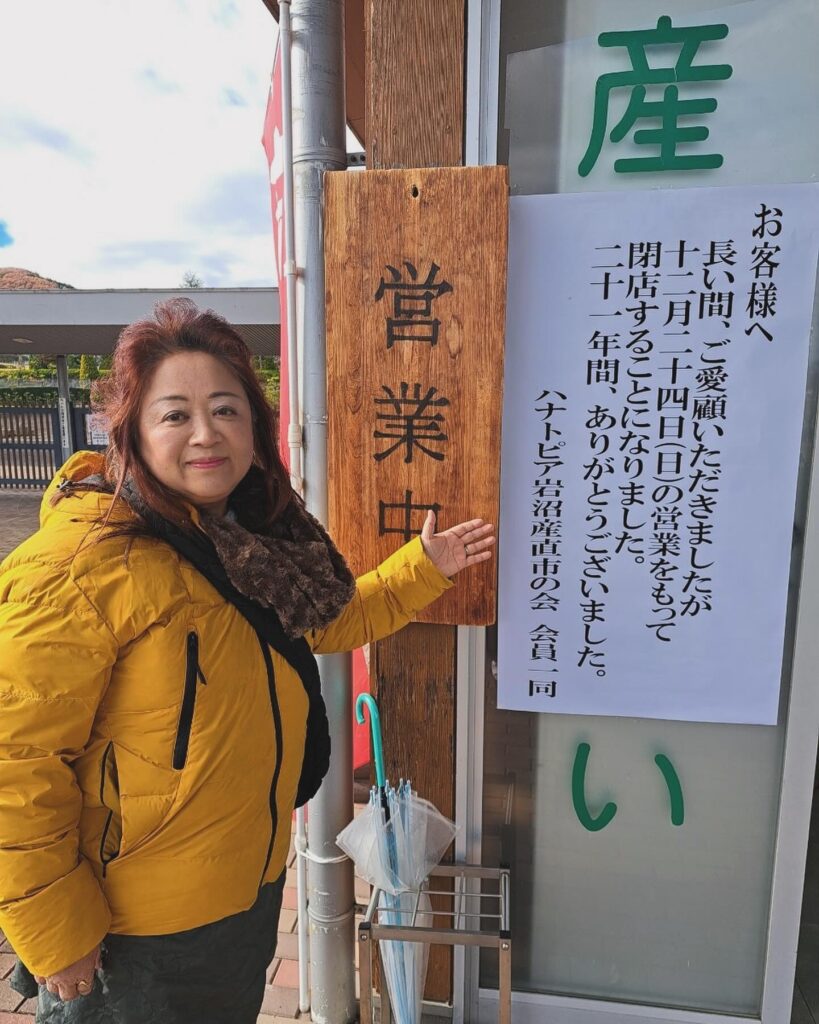 産
お客様へ
長い間、ご愛顧いただきましたが
十二月二十四日(日)の営業をもって
閉店することになりました。
二十一年間、ありがとうございました。
ハナトピア岩沼産直市の会 会員一同
い
営業中